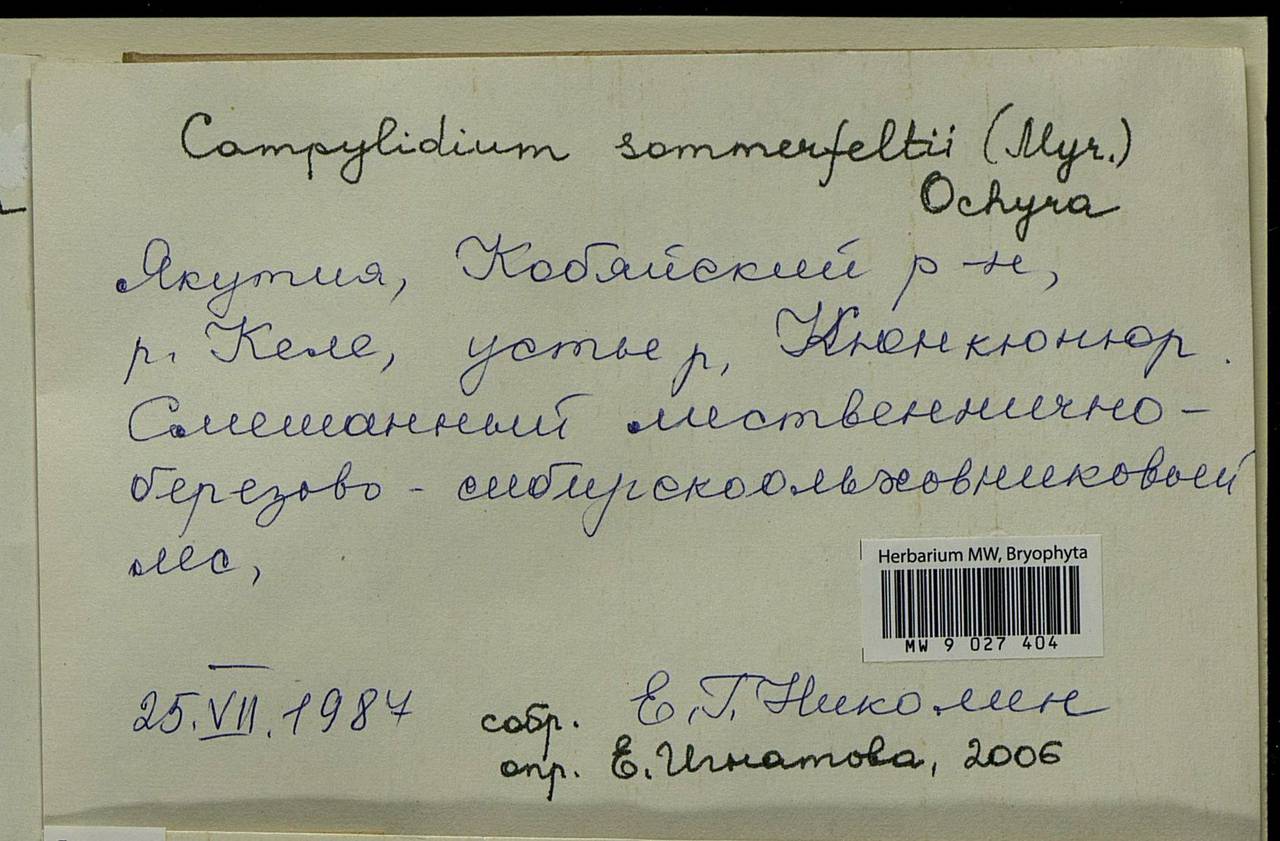 Campylidium sommerfeltii (Myr.)
Ochyra
Якутия, Кобяйский р-н,
р. Келе, устье р. Кюнкюнюр.
Смешанный лиственнично-
березово-сибирскоольховниковый
лес,
Herbarium MW, Bryophyta
MW 9 027 404
25.VII.1987 собр. Е.Г. Николин
опр. Е. Игнатова, 2006